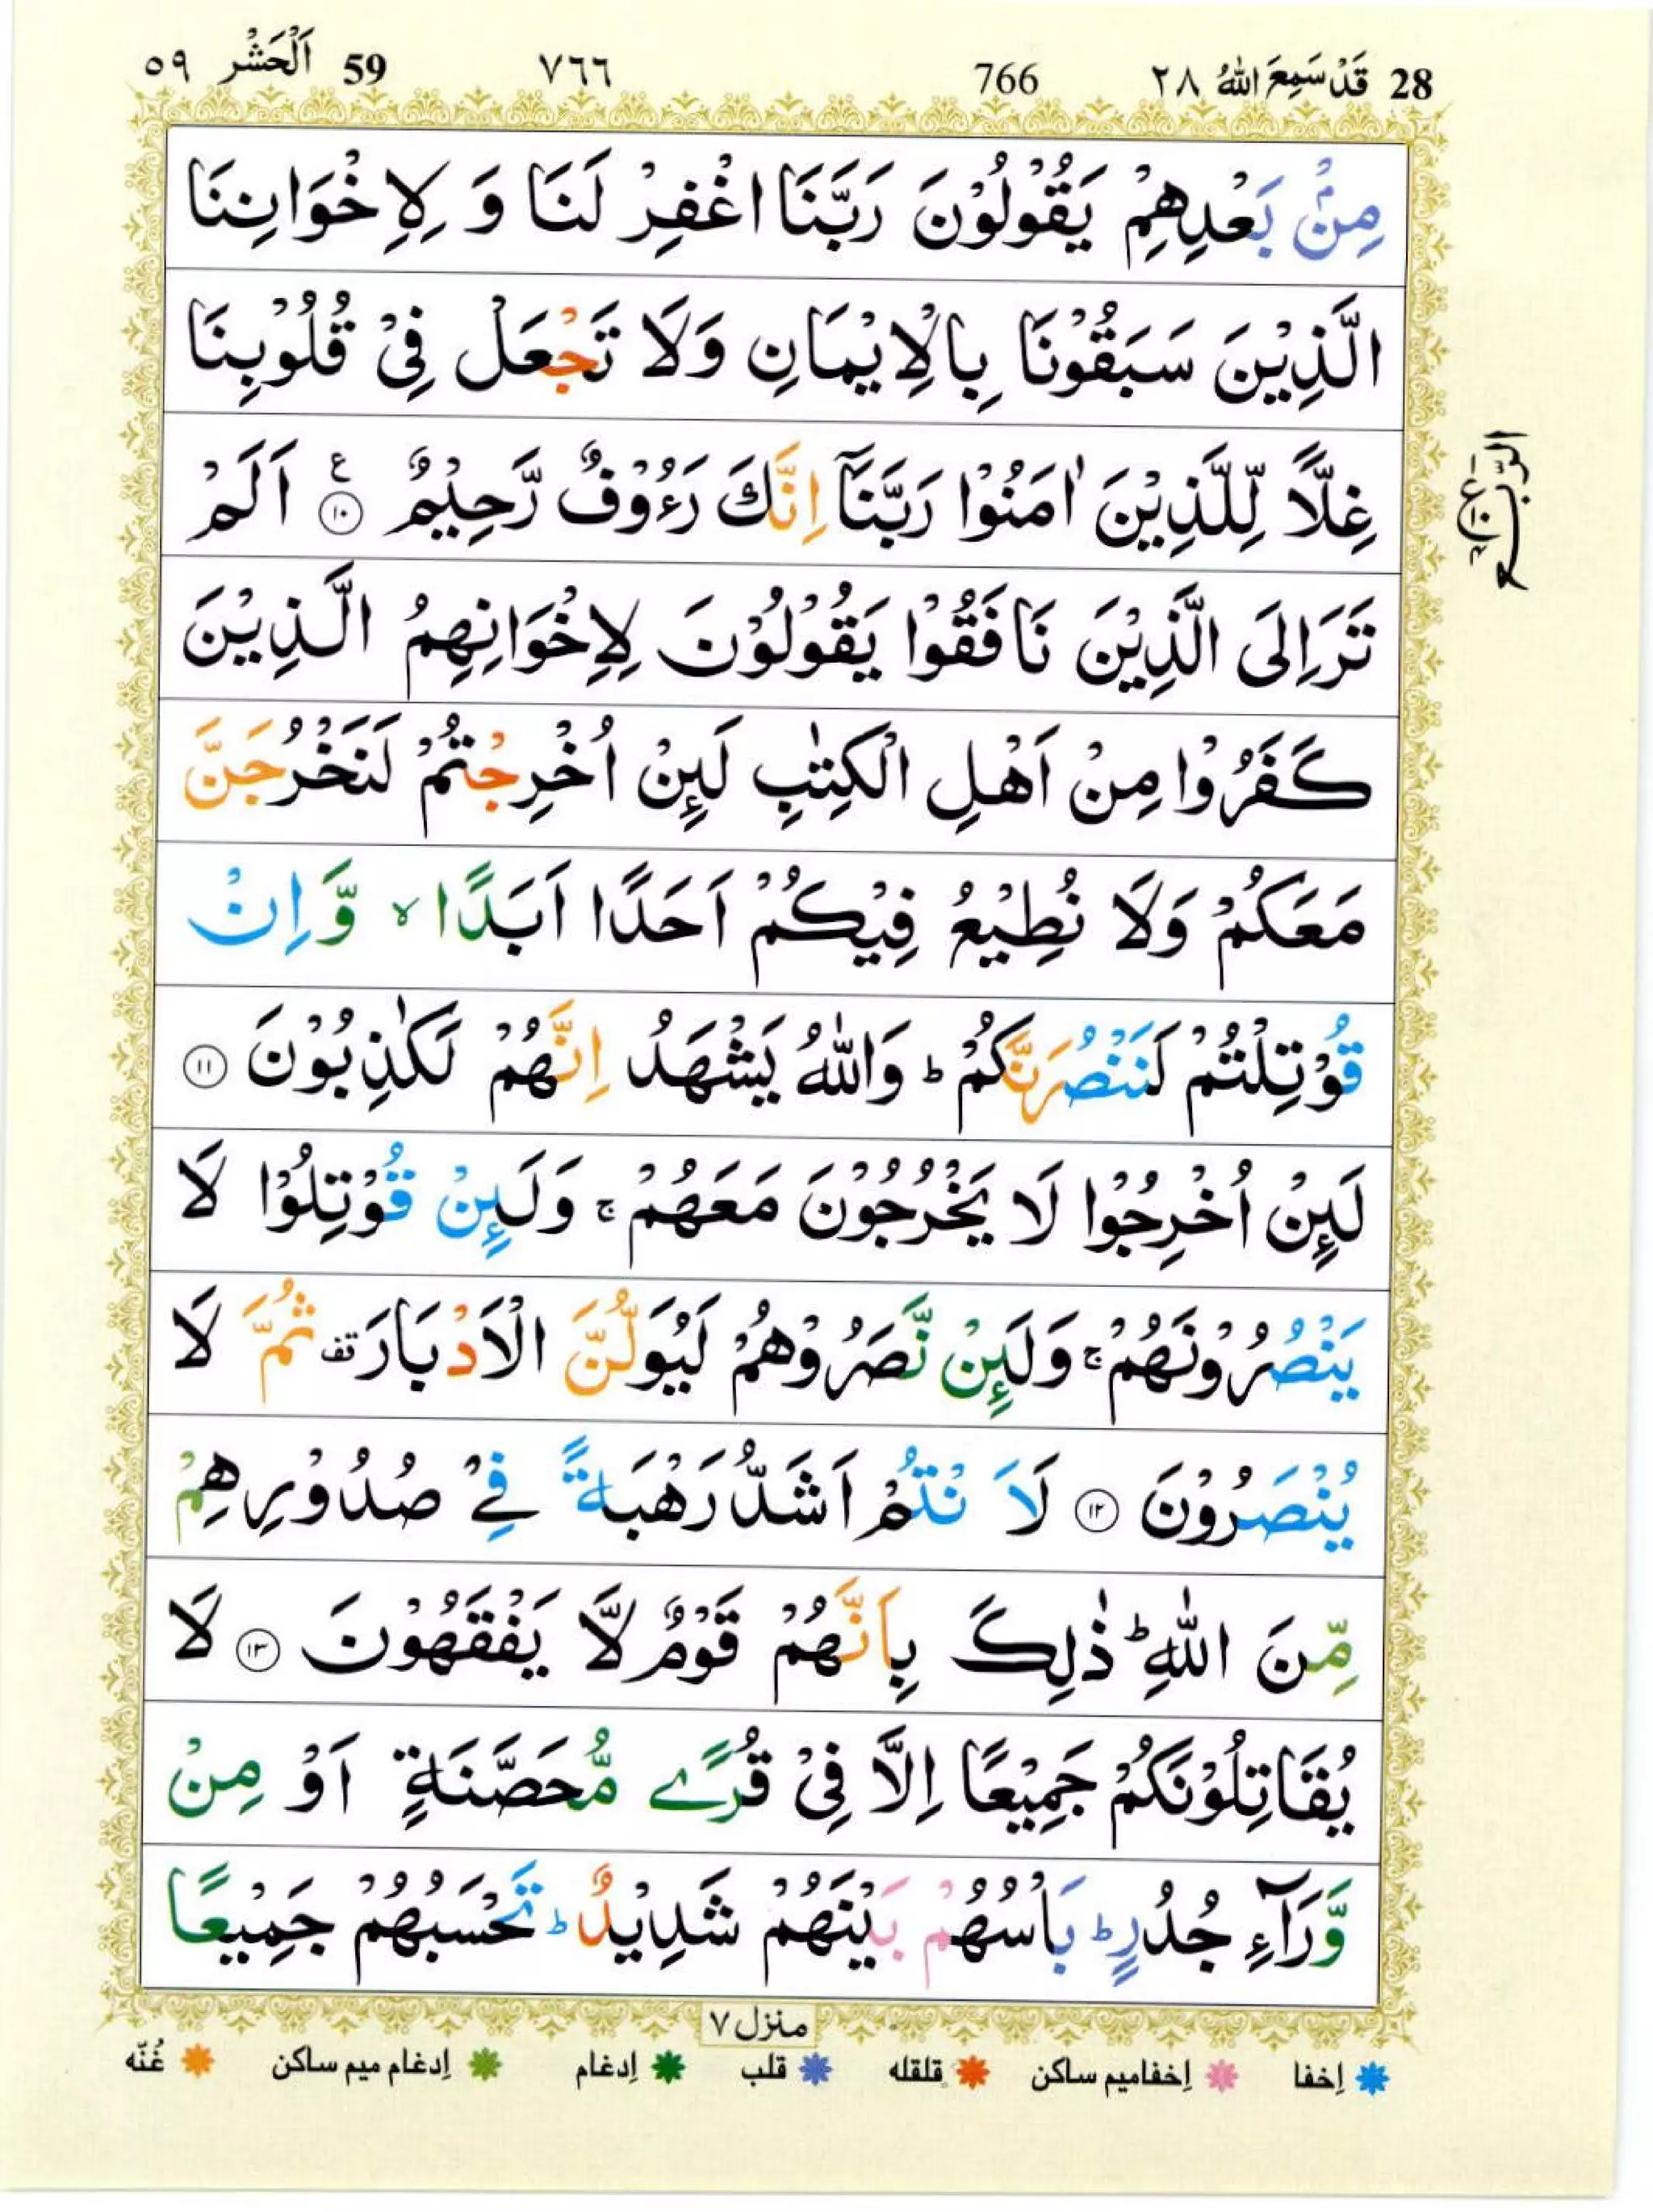 28 قَدْ سَمِعَ اللّٰهُ ٢٨ 766 ٧٦٦ 59 اَلْحَشْر ٥٩
مِنْۢ بَعْدِهِمْ يَقُوْلُوْنَ رَبَّنَا اغْفِرْ لَنَا وَ لِاِخْوَانِنَا
الَّذِيْنَ سَبَقُوْنَا بِالْاِيْمَانِ وَلَا تَجْعَلْ فِيْ قُلُوْبِنَا
غِلًّا لِّلَّذِيْنَ اٰمَنُوْا رَبَّنَآ اِنَّكَ رَءُوْفٌ رَّحِيْمٌ ۧ ﴿١٠﴾ اَلَمْ
تَرَ اِلَى الَّذِيْنَ نَافَقُوْا يَقُوْلُوْنَ لِاِخْوَانِهِمُ الَّذِيْنَ
كَفَرُوْا مِنْ اَهْلِ الْكِتٰبِ لَئِنْ اُخْرِجْتُمْ لَنَخْرُجَنَّ
مَعَكُمْ وَلَا نُطِيْعُ فِيْكُمْ اَحَدًا اَبَدًا ۙ وَّاِنْ
قُوْتِلْتُمْ لَنَنْصُرَنَّكُمْ ؕ وَاللّٰهُ يَشْهَدُ اِنَّهُمْ لَكٰذِبُوْنَ ﴿١١﴾
لَئِنْ اُخْرِجُوْا لَا يَخْرُجُوْنَ مَعَهُمْ ۚ وَلَئِنْ قُوْتِلُوْا لَا
يَنْصُرُوْنَهُمْ ۚ وَلَئِنْ نَّصَرُوْهُمْ لَيُوَلُّنَّ الْاَدْبَارَ قف ثُمَّ لَا
يُنْصَرُوْنَ ﴿١٢﴾ لَا۟نْتُمْ اَشَدُّ رَهْبَةً فِيْ صُدُوْرِهِمْ
مِّنَ اللّٰهِ ؕ ذٰلِكَ بِاَنَّهُمْ قَوْمٌ لَّا يَفْقَهُوْنَ ﴿١٣﴾ لَا
يُقَاتِلُوْنَكُمْ جَمِيْعًا اِلَّا فِيْ قُرًى مُّحَصَّنَةٍ اَوْ مِنْ
وَّرَآءِ جُدُرٍ ؕ بَاْسُهُمْ بَيْنَهُمْ شَدِيْدٌ ؕ تَحْسَبُهُمْ جَمِيْعًا
الرّبع
ع ١٠
منزل ٧
إخفا إخفاميم ساكن قلقله قلب إدغام إدغام ميم ساكن غُنّه